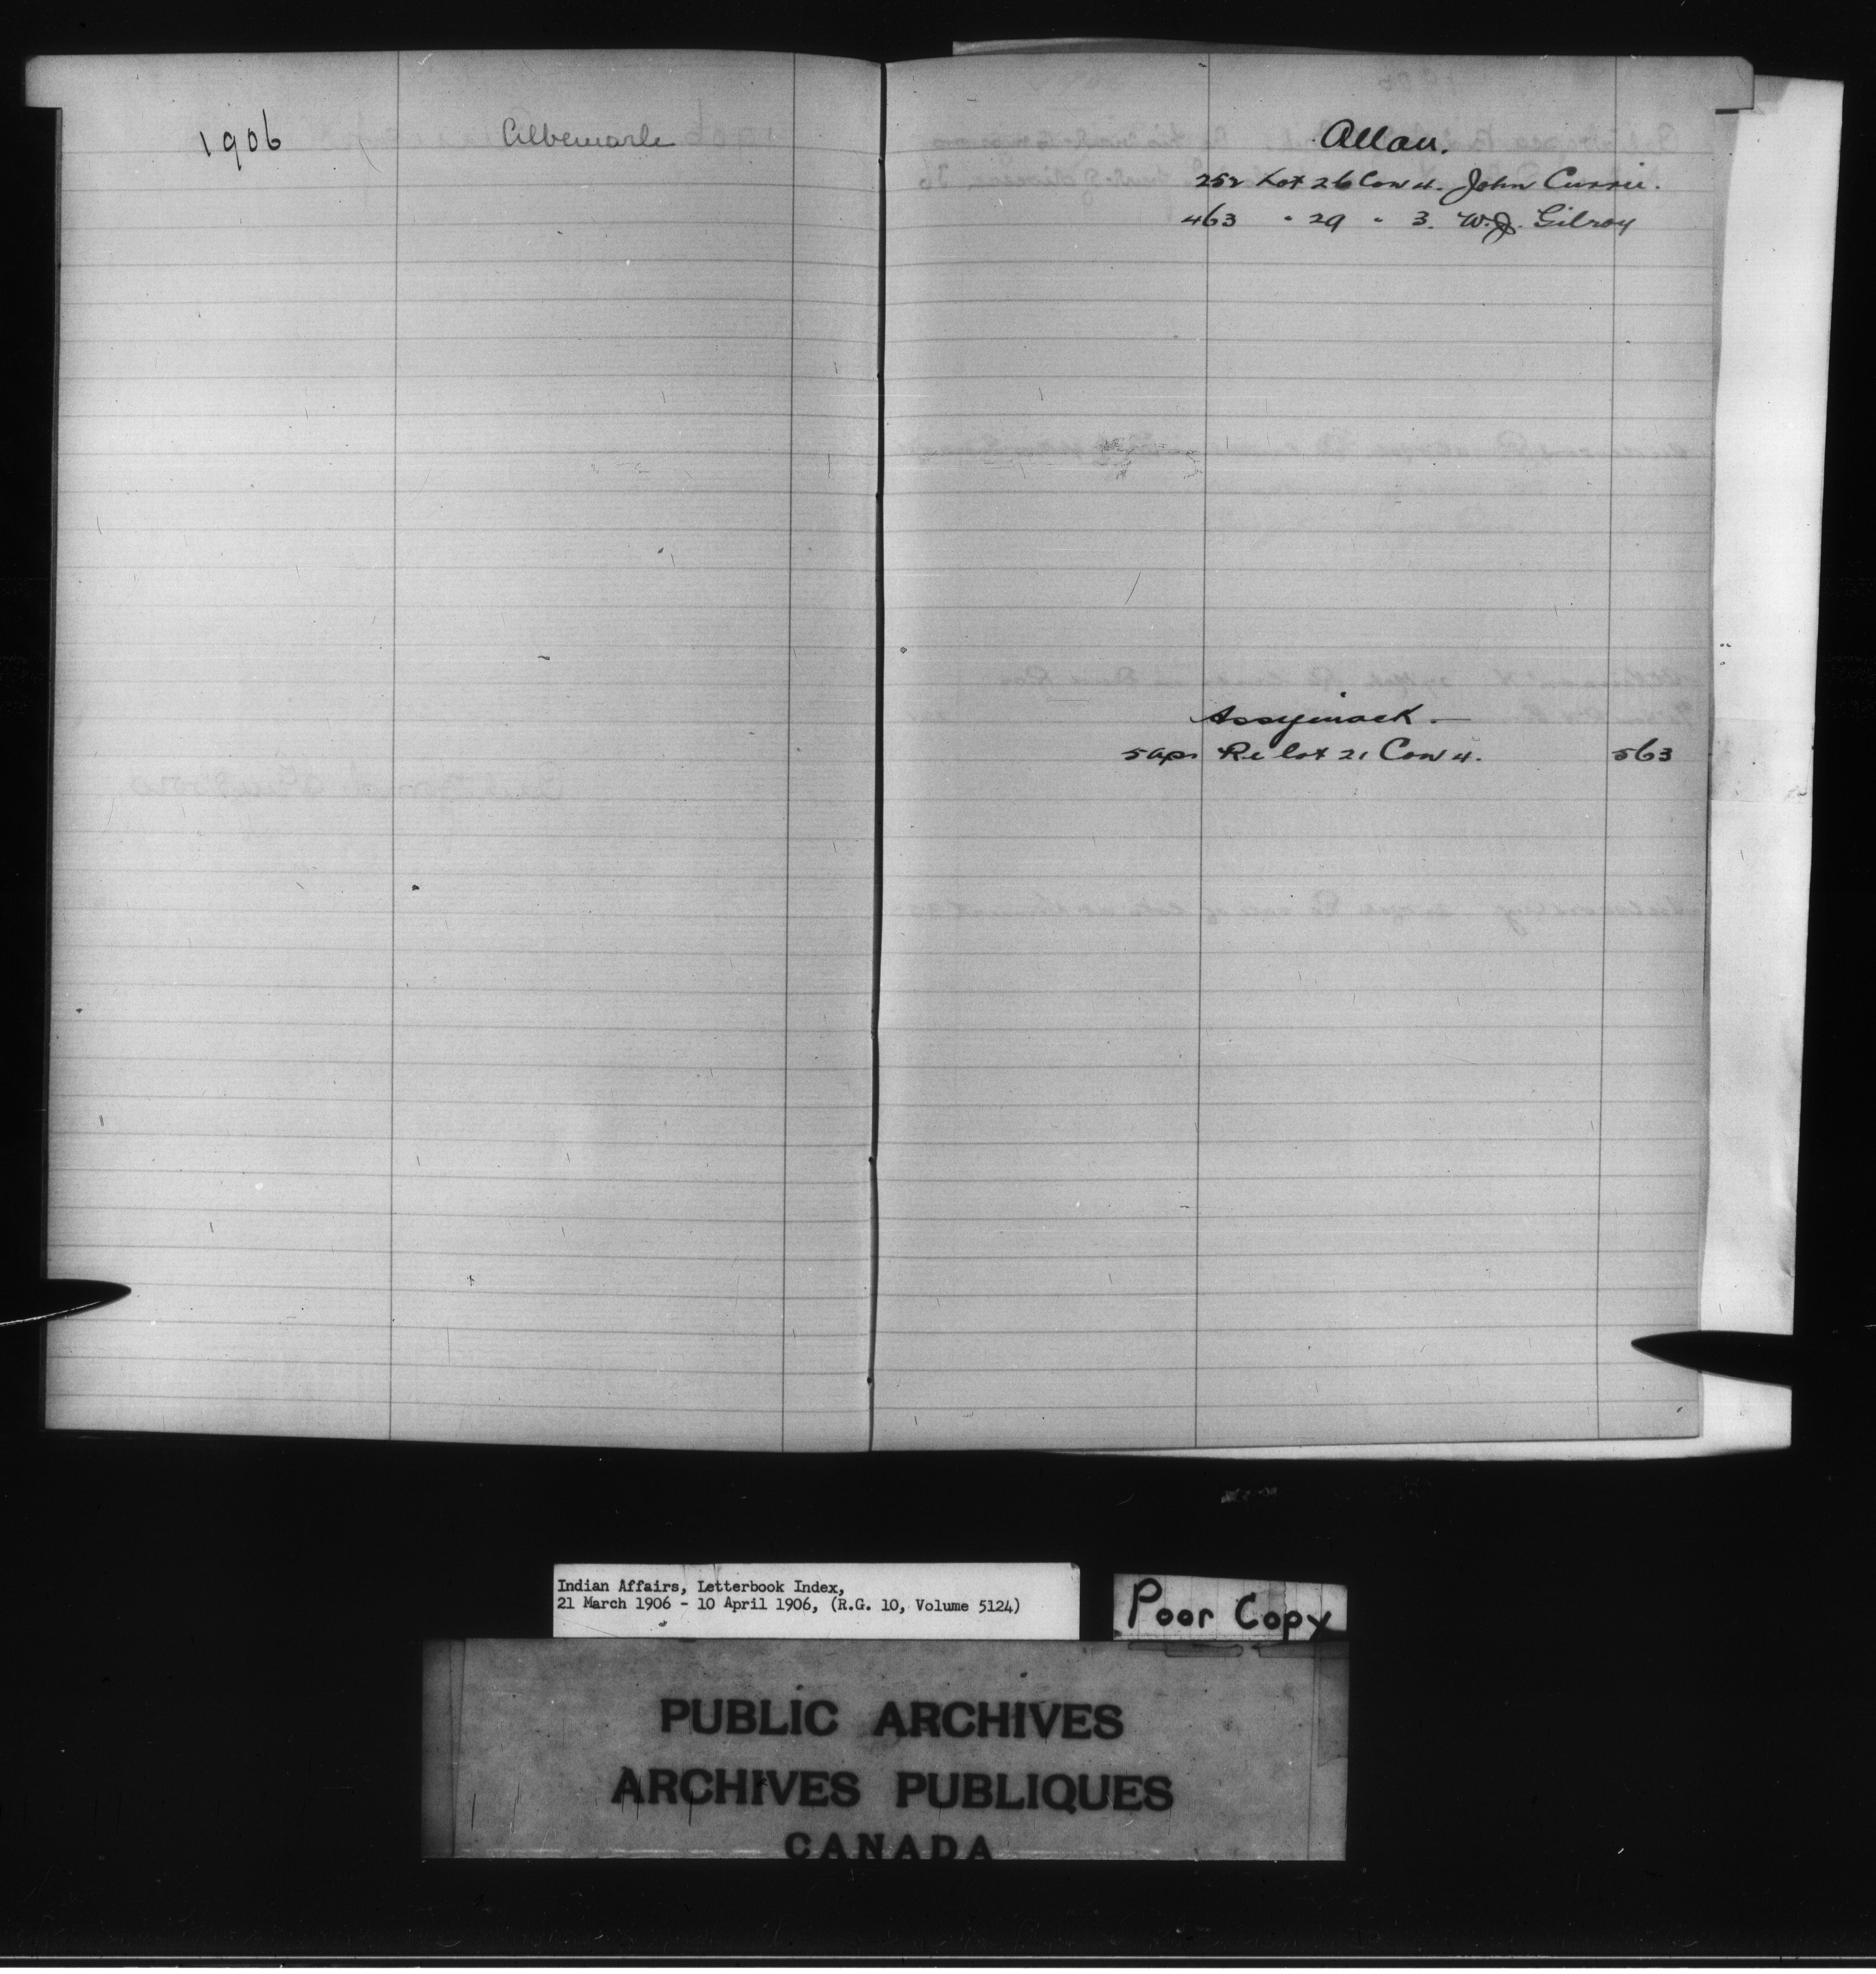 1906
Albemarle
Allan.
252 Lot 26 Con 4. John Currie.
463 " 29 " 3. W.J. Gilroy
Assyinack.—
5 Apr Re lot 21 Con 4. 563
Indian Affairs, Letterbook Index,
21 March 1906 - 10 April 1906, (R.G. 10, Volume 5124)
Poor Copy
PUBLIC ARCHIVES
ARCHIVES PUBLIQUES
CANADA